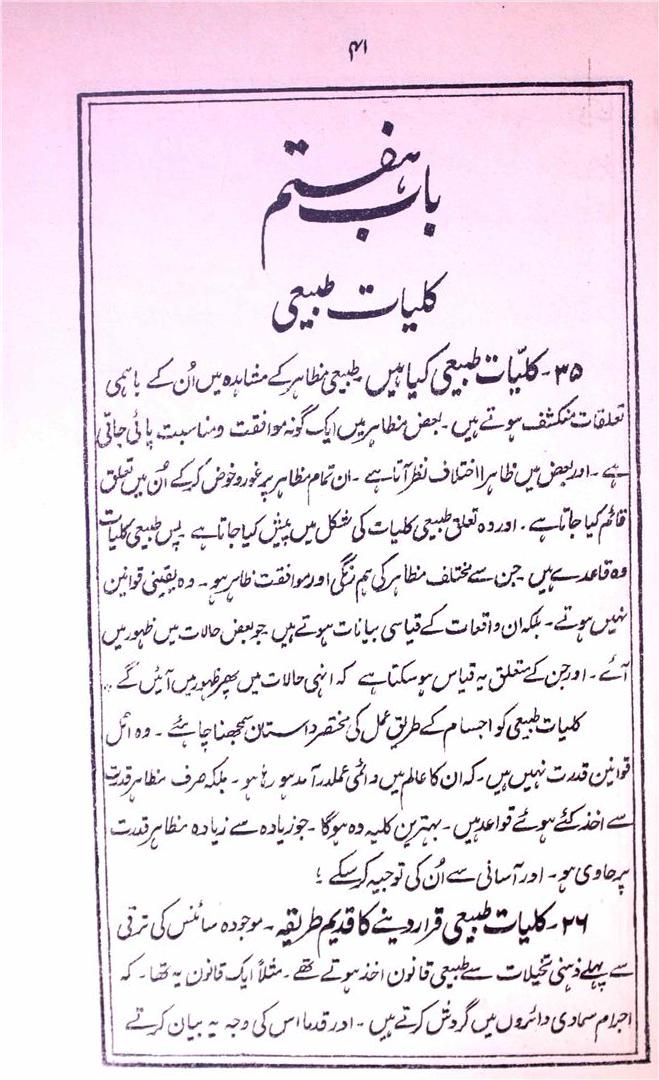 ۴۱
باب ہفتم
کلیات طبیعی
۳۵- کلیّات طبیعی کیا ہیں۔ طبیعی مظاہر کے مشاہدہ میں اُن کے باہمی
تعلقات منکشف ہوتے ہیں۔ بعض مظاہر میں ایک گونہ موافقت و مناسبت پائی جاتی
ہے۔ اور بعض میں ظاہرا اختلاف نظر آتا ہے۔ ان تمام مظاہر پر غور و خوض کر کے اُن میں تعلق
قائم کیا جاتا ہے۔ اور وہ تعلق طبیعی کلیات کی شکل میں پیش کیا جاتا ہے پس طبیعی کلیات
وہ قاعدے ہیں جن سے مختلف مظاہر کی ہم رنگی اور موافقت ظاہر ہو۔ وہ یقینی قوانین
نہیں ہوتے۔ بلکہ ان واقعات کے قیاسی بیانات ہوتے ہیں جو بعض حالات میں ظہور میں
آئے۔ اور جن کے متعلق یہ قیاس ہو سکتا ہے کہ انہی حالات میں پھر ظہور میں آئیں گے۔
کلیات طبیعی کو اجسام کے طریق عمل کی مختصر داستان سمجھنا چاہئے۔ وہ اٹل
قوانین قدرت نہیں ہیں۔ کہ ان کا عالم میں دائمی عملدرآمد ہو رہا ہو۔ بلکہ صرف مظاہر قدرت
سے اخذ کئے ہوئے قواعد ہیں۔ بہترین کلیہ وہ ہوگا۔ جو زیادہ سے زیادہ مظاہر قدرت
پر حاوی ہو۔ اور آسانی سے اُن کی توجیہ کر سکے؛
۲۶- کلیات طبیعی قرار دینے کا قدیم طریقہ۔ موجودہ سائنس کی ترقی
سے پہلے ذہنی تخیلات سے طبیعی قانون اخذ ہوتے تھے۔ مثلاً ایک قانون یہ تھا۔ کہ
اجرام سماوی دائروں میں گردش کرتے ہیں۔ اور قدما اس کی وجہ یہ بیان کرتے